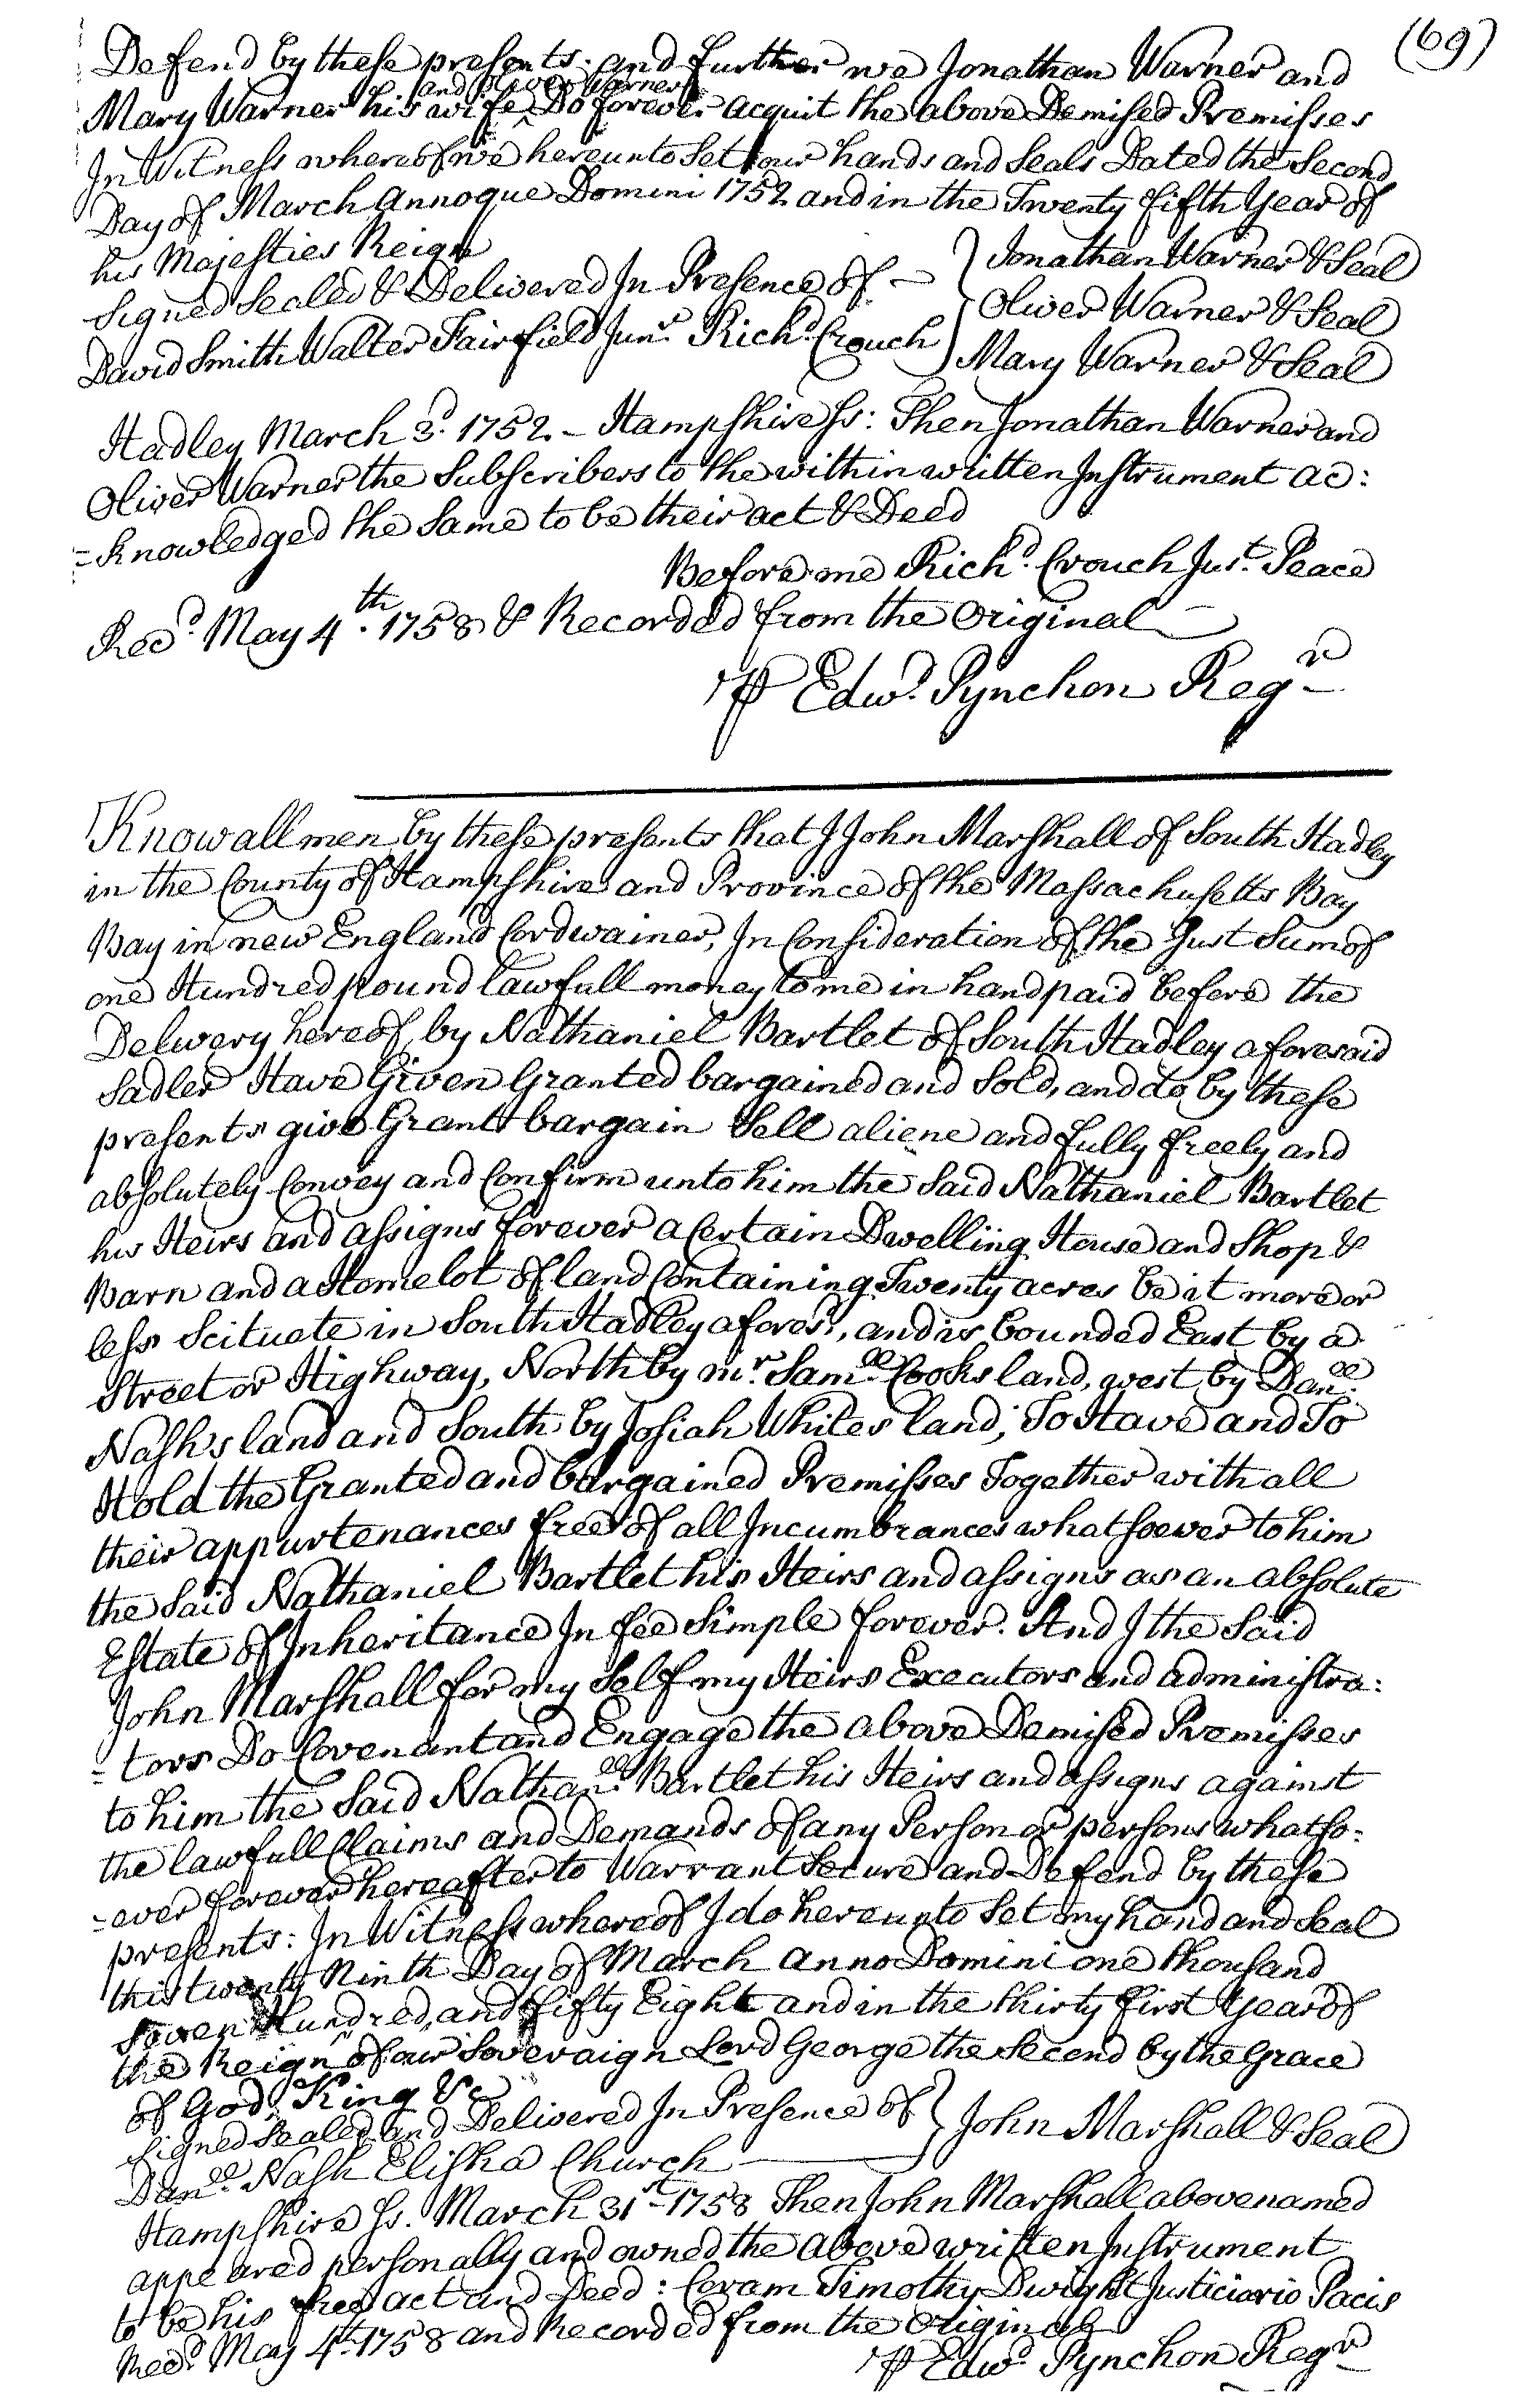 (69)
Defend by these presents. and further we Jonathan Warner and
and Oliver Warner
Mary Warner his wife ^ Do forever acquit the above Demised Premisses
In Witness whereof we hereunto Set our hands and Seals Dated the Second
Day of March Annoque Domini 1752 and in the Twenty fifth Year of
his Majesties Reign
Signed Sealed & Delivered In Presence of — } Jonathan Warner & Seal
Oliver Warner & Seal
David Smith Walter Fairfield Junr. Richd. Crouch } Mary Warner & Seal
Hadley March 3d. 1752. – Hampshire Ss: Then Jonathan Warner and
Oliver Warner the Subscribers to the within written Instrument ac:
=knowledged the Same to be their act & Deed
Before me Richd. Crouch Just. Peace
Recd. May 4th. 1758 & Recorded from the Original
⅌ Edwd. Pynchon Regr
Know all men by these presents that I John Marshall of South Hadley
in the County of Hampshire and Province of the Massachusetts Bay
Bay in new England Cordwainer, In Consideration of the Just Sum of
one Hundred pound lawfull money to me in hand paid before the
Delivery hereof, by Nathaniel Bartlet of South Hadley aforesaid
Sadler Have Given Granted bargained and Sold, and do by these
presents give Grant bargain Sell aliene and fully freely and
absolutely Convey and Confirm unto him the Said Nathaniel Bartlet
his Heirs and assigns forever a Certain Dwelling House and Shop &
Barn and a Homelot of land Containing Twenty acres be it more or
less Scituate in South Hadley aforesd., and is bounded East by a
Street or Highway, North by mr. Samll. Cooks land, west by Danll.
Nash's land and South by Josiah Whites land; To Have and To
Hold the Granted and bargained Premisses Together with all
their appurtenances free of all Incumbrances whatsoever to him
the Said Nathaniel Bartlet his Heirs and assigns as an absolute
Estate of Inheritance In fee Simple forever. And I the Said
John Marshall for my Self my Heirs Executors and administra:
=tors Do Covenant and Engage the above Demised Premisses
to him the Said Nathanll. Bartlet his Heirs and assigns against
the lawfull Claims and Demands of any Person or persons whatso=
=ever forever hereafter to Warrant Secure and Defend by these
presents: In Witness whereof I do hereunto Set my hand and Seal
this twenty Ninth Day of March anno Domini one thousand
Seven Hundred, and fifty Eight and in the thirty first Year of
the Reign of our Soveraign Lord George the Second by the Grace
of God, King &c
Signed Sealed and Delivered In Presence of } John Marshall & Seal
Danll. Nash Elisha Church
Hampshire Ss. March 31st 1758 Then John Marshall abovenamed
appeared personally and owned the above written Instrument
to be his free act and Deed: Coram Timothy Dwight Justiciario Pacis
Recd. May 4th. 1758 and Recorded from the Original
⅌ Edwd Pynchon Regr